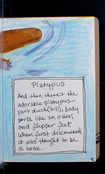 Platypus
And then there's the
adorable platypus-
part duck (bill), body
parts like an otter,
and flipper feet
when first discovered
it was thought to be
a hoax.